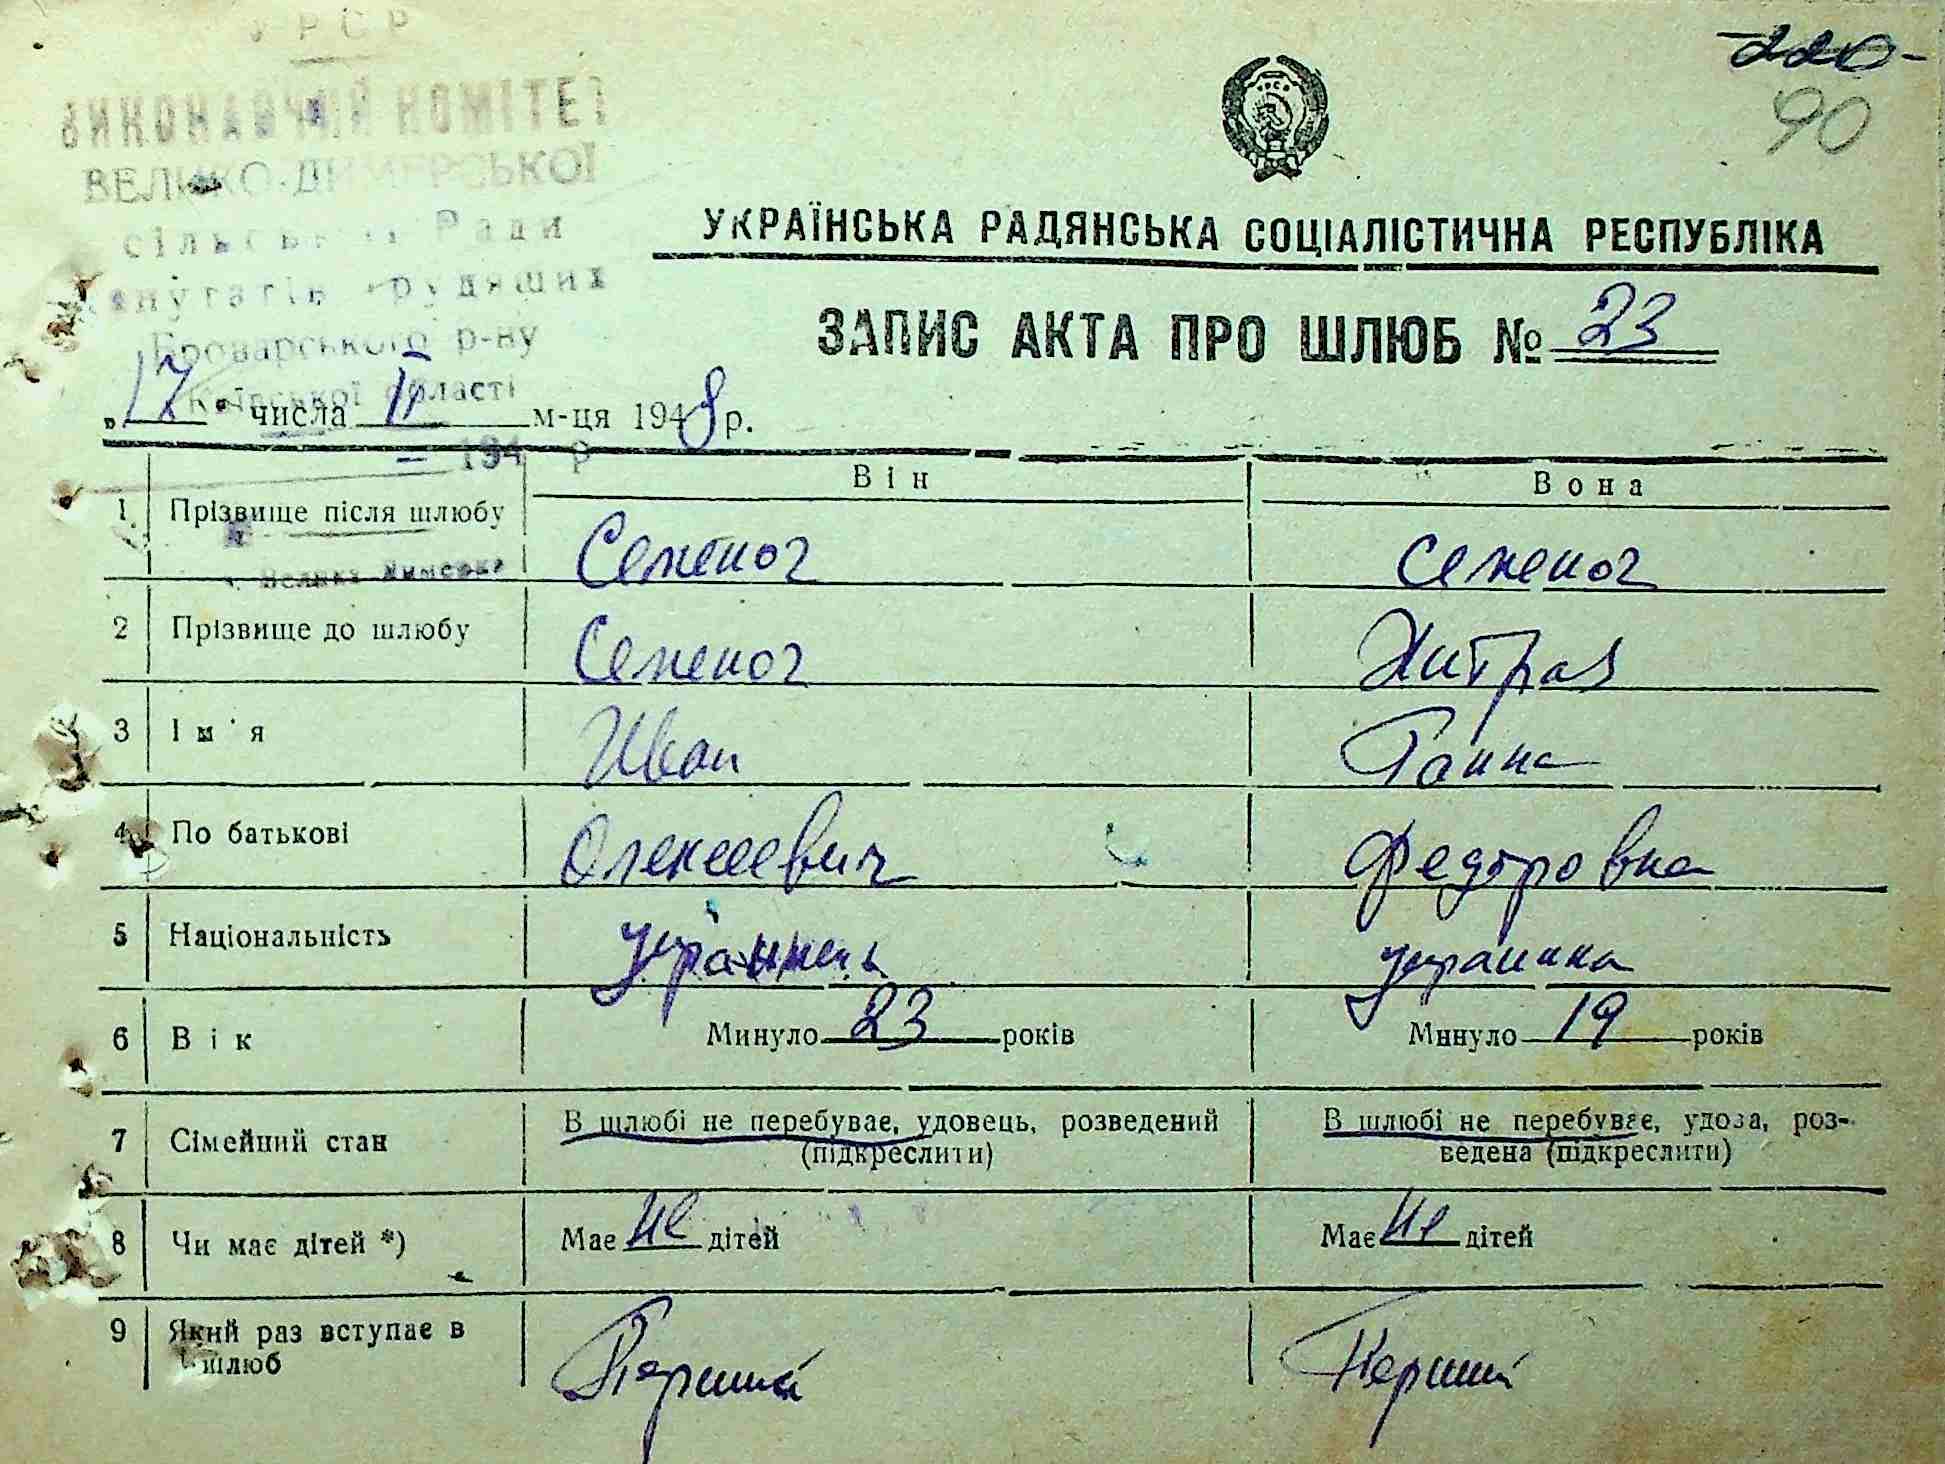 УРСР
ВИКОНАВЧИЙ КОМІТЕТ
ВЕЛИКО-ДИМЕРСЬКОЇ
сільської Ради
депутатів трудящих
Броварського р-ну
Київської області
194 р
Велика Димерка
-220-
90
УРСР
УКРАЇНСЬКА РАДЯНСЬКА СОЦІАЛІСТИЧНА РЕСПУБЛІКА
ЗАПИС АКТА ПРО ШЛЮБ № 23
„17" числа II м-ця 1948 р.
Він Вона
1 Прізвище після шлюбу Семеног Семеног
2 Прізвище до шлюбу Семеног Хитрая
3 Ім'я Иван Ганна
4 По батькові Олексеевич Федоровна
5 Національність українець украинка
6 Вік Минуло 23 років Минуло 19 років
7 Сімейний стан В шлюбі не перебуває, удовець, розведений (підкреслити) В шлюбі не перебуває, удова, роз-
ведена (підкреслити)
8 Чи має дітей *) Має не дітей Має не дітей
9 Який раз вступає в Перший Перший
шлюб